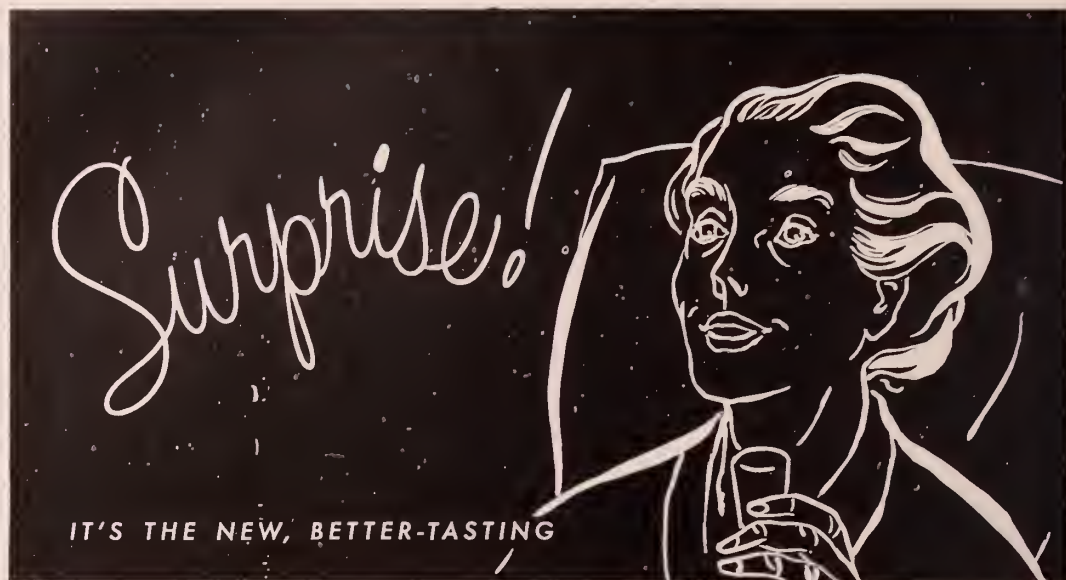 Surprise!
IT'S THE NEW, BETTER-TASTING